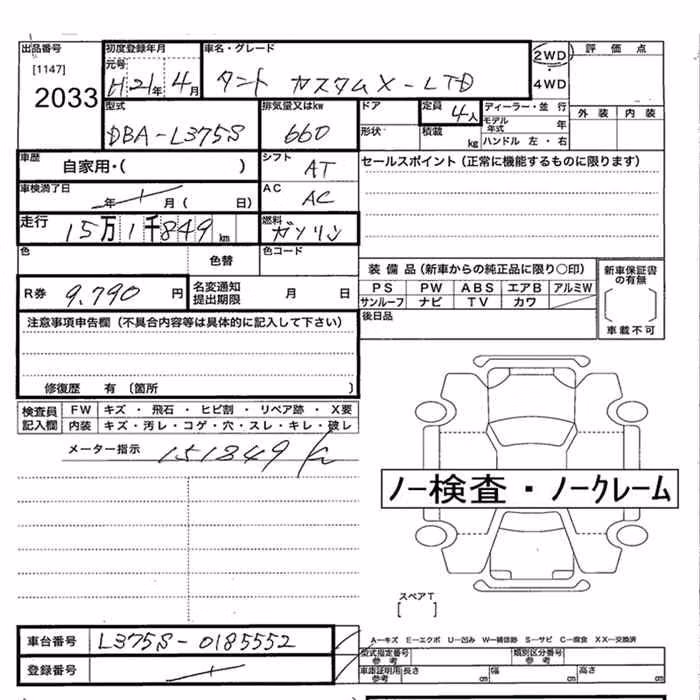 出品番号 初度登録年月 車名・グレード 2WD 評価点
[1147] 元号 ・
2033 H21年 4月 タント カスタムX-LTD 4WD
型式 排気量又はkw ドア 定員 4人 ディーラー・並行 外装 内装
DBA-L375S 660 形状 積載 kg モデル年式 年
ハンドル 左・右
車歴 自家用・( ) シフト AT セールスポイント (正常に機能するものに限ります)
車検満了日 年 月 ( 日) AC AC
走行 15万1千849km 燃料 ガソリン
色 色替 色コード
装備品 (新車からの純正品に限り○印) 新車保証書の有無
R券 9,790 円 名変通知提出期限 月 日 PS PW ABS エアB アルミW
サンルーフ ナビ TV カワ
注意事項申告欄 (不具合内容等は具体的に記入して下さい) 後日品 車載不可
修復歴 有 (箇所 )
検査員記入欄 FW キズ・飛石・ヒビ割・リペア跡・X要
内装 キズ・汚レ・コゲ・穴・スレ・キレ・破レ
メーター指示 151849
ノー検査・ノークレーム
スペアT
[ ]
車台番号 L375S-0185552 A-キズ E-エクボ U-凹み W-補修跡 S-サビ C-腐食 XX-交換済
型式指定番号 参考 類別区分番号 参考
登録番号 車庫証明用参考 長さ cm 幅 cm 高さ cm